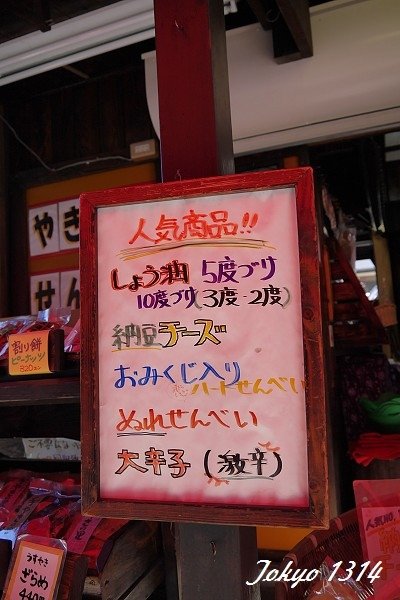 やき
せん
人気商品!!
しょう油 5度づけ
10度づけ(3度-2度)
納豆チーズ
おみくじ入り
恋ハートせんべい
ぬれせんべい
大辛子(激辛)
割り餅
ピーナッツ
320
うすやき
ざらめ
人気商品
Tokyo 1314